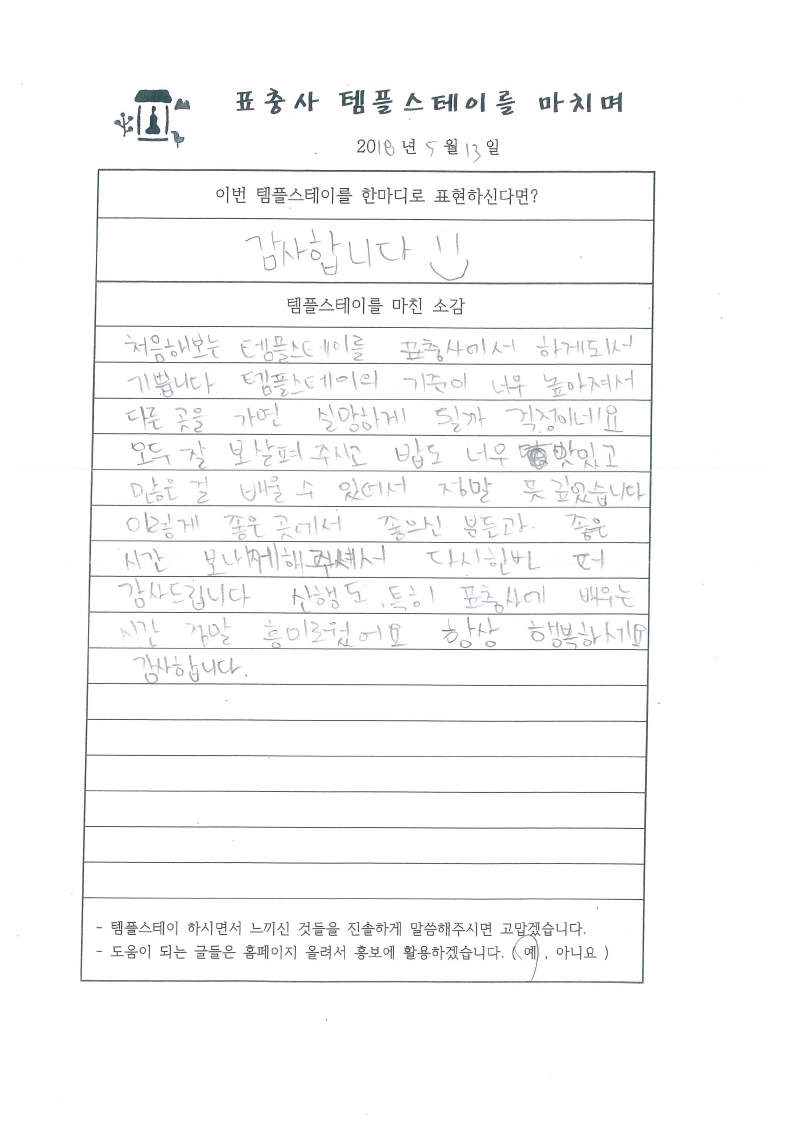 표충사 템플스테이를 마치며
2018년 5월 13일
이번 템플스테이를 한마디로 표현하신다면?
감사합니다
템플스테이를 마친 소감
처음해보는 템플스테이를 표충사에서 하게되서
기쁩니다 템플스테이의 기준이 너무 높아져서
다른 곳을 가면 실망하게 될까 걱정이네요
모두 잘 보살펴 주시고 밥도 너무 맛있고
많은 걸 배울 수 있어서 정말 뜻 깊었습니다
이렇게 좋은 곳에서 좋으신 분들과. 좋은
시간 보내게해주셔서 다시한번 더
감사드립니다 산행도, 특히 표충사에 배우는
시간 정말 흥미로웠어요 항상 행복하세요
감사합니다.
- 템플스테이 하시면서 느끼신 것들을 진솔하게 말씀해주시면 고맙겠습니다.
- 도움이 되는 글들은 홈페이지 올려서 홍보에 활용하겠습니다. ( 예 , 아니요 )